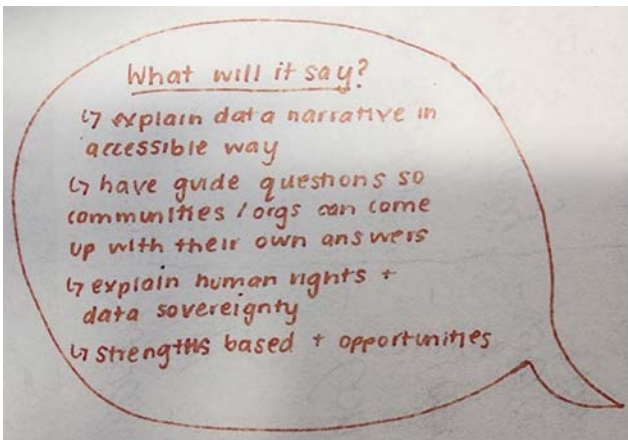 What will it say?
↳ explain data narrative in
accessible way
↳ have guide questions so
communities / orgs can come
up with their own answers
↳ explain human rights +
data sovereignty
↳ strengths based + opportunities